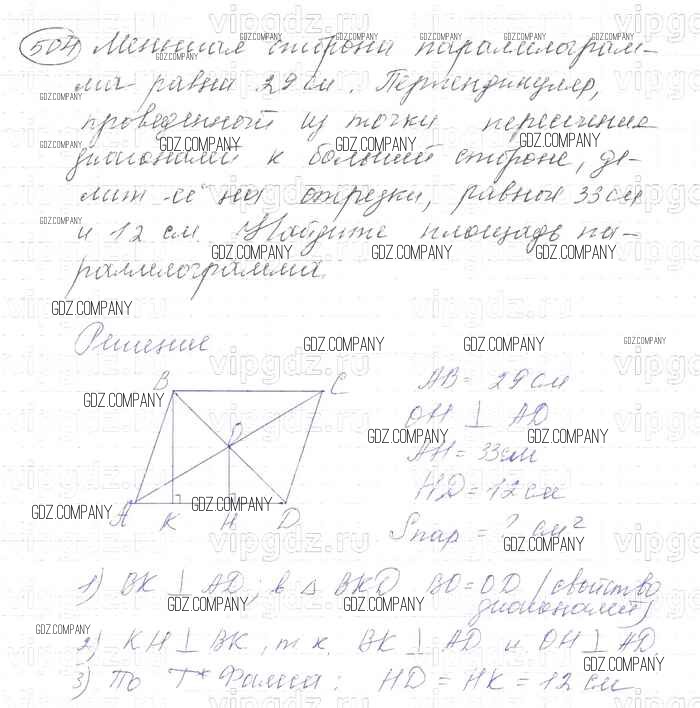 504 Меньшая сторона параллелограм-
ма равна 29 см. Перпендикуляр,
проведенный из точки пересечения
диагоналей к большей стороне, де-
лит её на отрезки, равные 33 см
и 12 см. Найдите площадь па-
раллелограмма.
Решение
B C
O
A K H D
AB = 29 см
OH ⊥ AD
AH = 33 см
HD = 12 см
Sпар = ? см²
1) BK ⊥ AD; в △ BKD BO = OD (свойство
диагоналей)
2) KH ⊥ BK, т.к. BK ⊥ AD и OH ⊥ AD.
3) По Т* Фалеса: HD = HK = 12 см
GDZ.COMPANY
vipgdz.ru